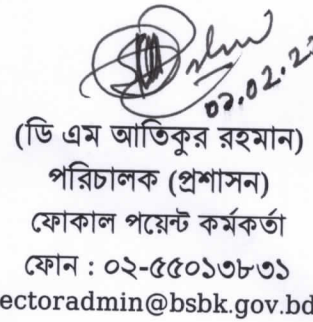 ০২.০২.২
(ডি এম আতিকুর রহমান)
পরিচালক (প্রশাসন)
ফোকাল পয়েন্ট কর্মকর্তা
ফোন : ০২-৫৫০১৩৮৩১
ectoradmin@bsbk.gov.bd